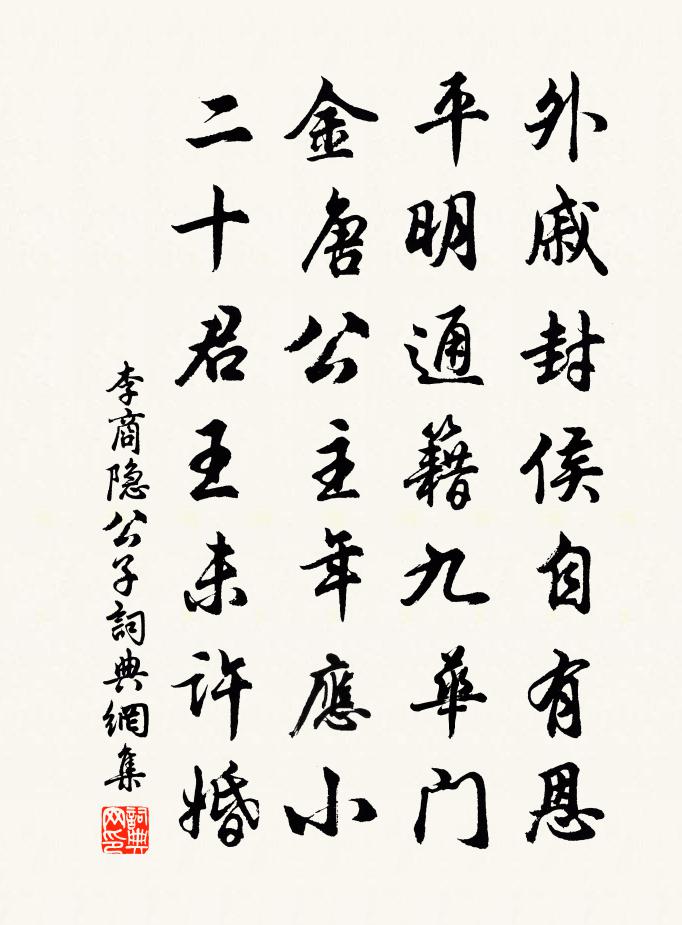 外戚封侯自有恩
平明通籍九華门
金唐公主年應小
二十君王未許婚
李商隐公子詞典網集
詞典网印